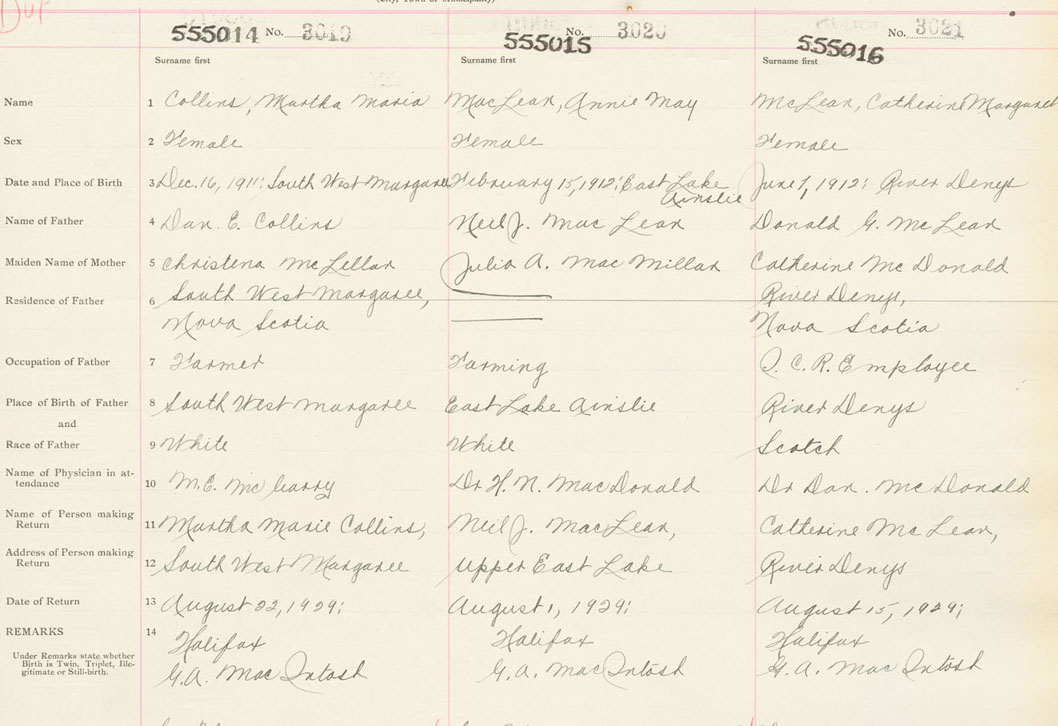 (City, Town or Municipality)
Dup
555014 No. 3019 555015 No. 3020 555016 No. 3021
Surname first Surname first Surname first
Name 1 Collins, Martha Maria MacLean, Annie May McLean, Catherine Margaret
Sex 2 Female Female Female
Date and Place of Birth 3 Dec. 16, 1911: South West Margaree February 15, 1912; East Lake Ainslie June 1, 1912: River Denys
Name of Father 4 Dan. E. Collins Neil J. Mac Lean Donald G. McLean
Maiden Name of Mother 5 Christena McLellan Julia A. Mac Millan Catherine McDonald
Residence of Father 6 South West Margaree, River Denys,
Nova Scotia Nova Scotia
Occupation of Father 7 Farmer Farming I. C. R. Employee
Place of Birth of Father 8 South West Margaree East Lake Ainslie River Denys
and
Race of Father 9 White White Scotch
Name of Physician in at-
tendance 10 M. E. McGarry Dr H. N. MacDonald Dr Dan. McDonald
Name of Person making
Return 11 Martha Marie Collins, Neil J. MacLean, Catherine McLean,
Address of Person making
Return 12 South West Margaree Upper East Lake River Denys
Date of Return 13 August 22, 1929; August 1, 1929; August 15, 1929;
REMARKS 14 Halifax Halifax Halifax
Under Remarks state whether
Birth is Twin, Triplet, Ille-
gitimate or Still-birth.
G. A. Mac Intosh G. A. Mac Intosh G. A. Mac Intosh